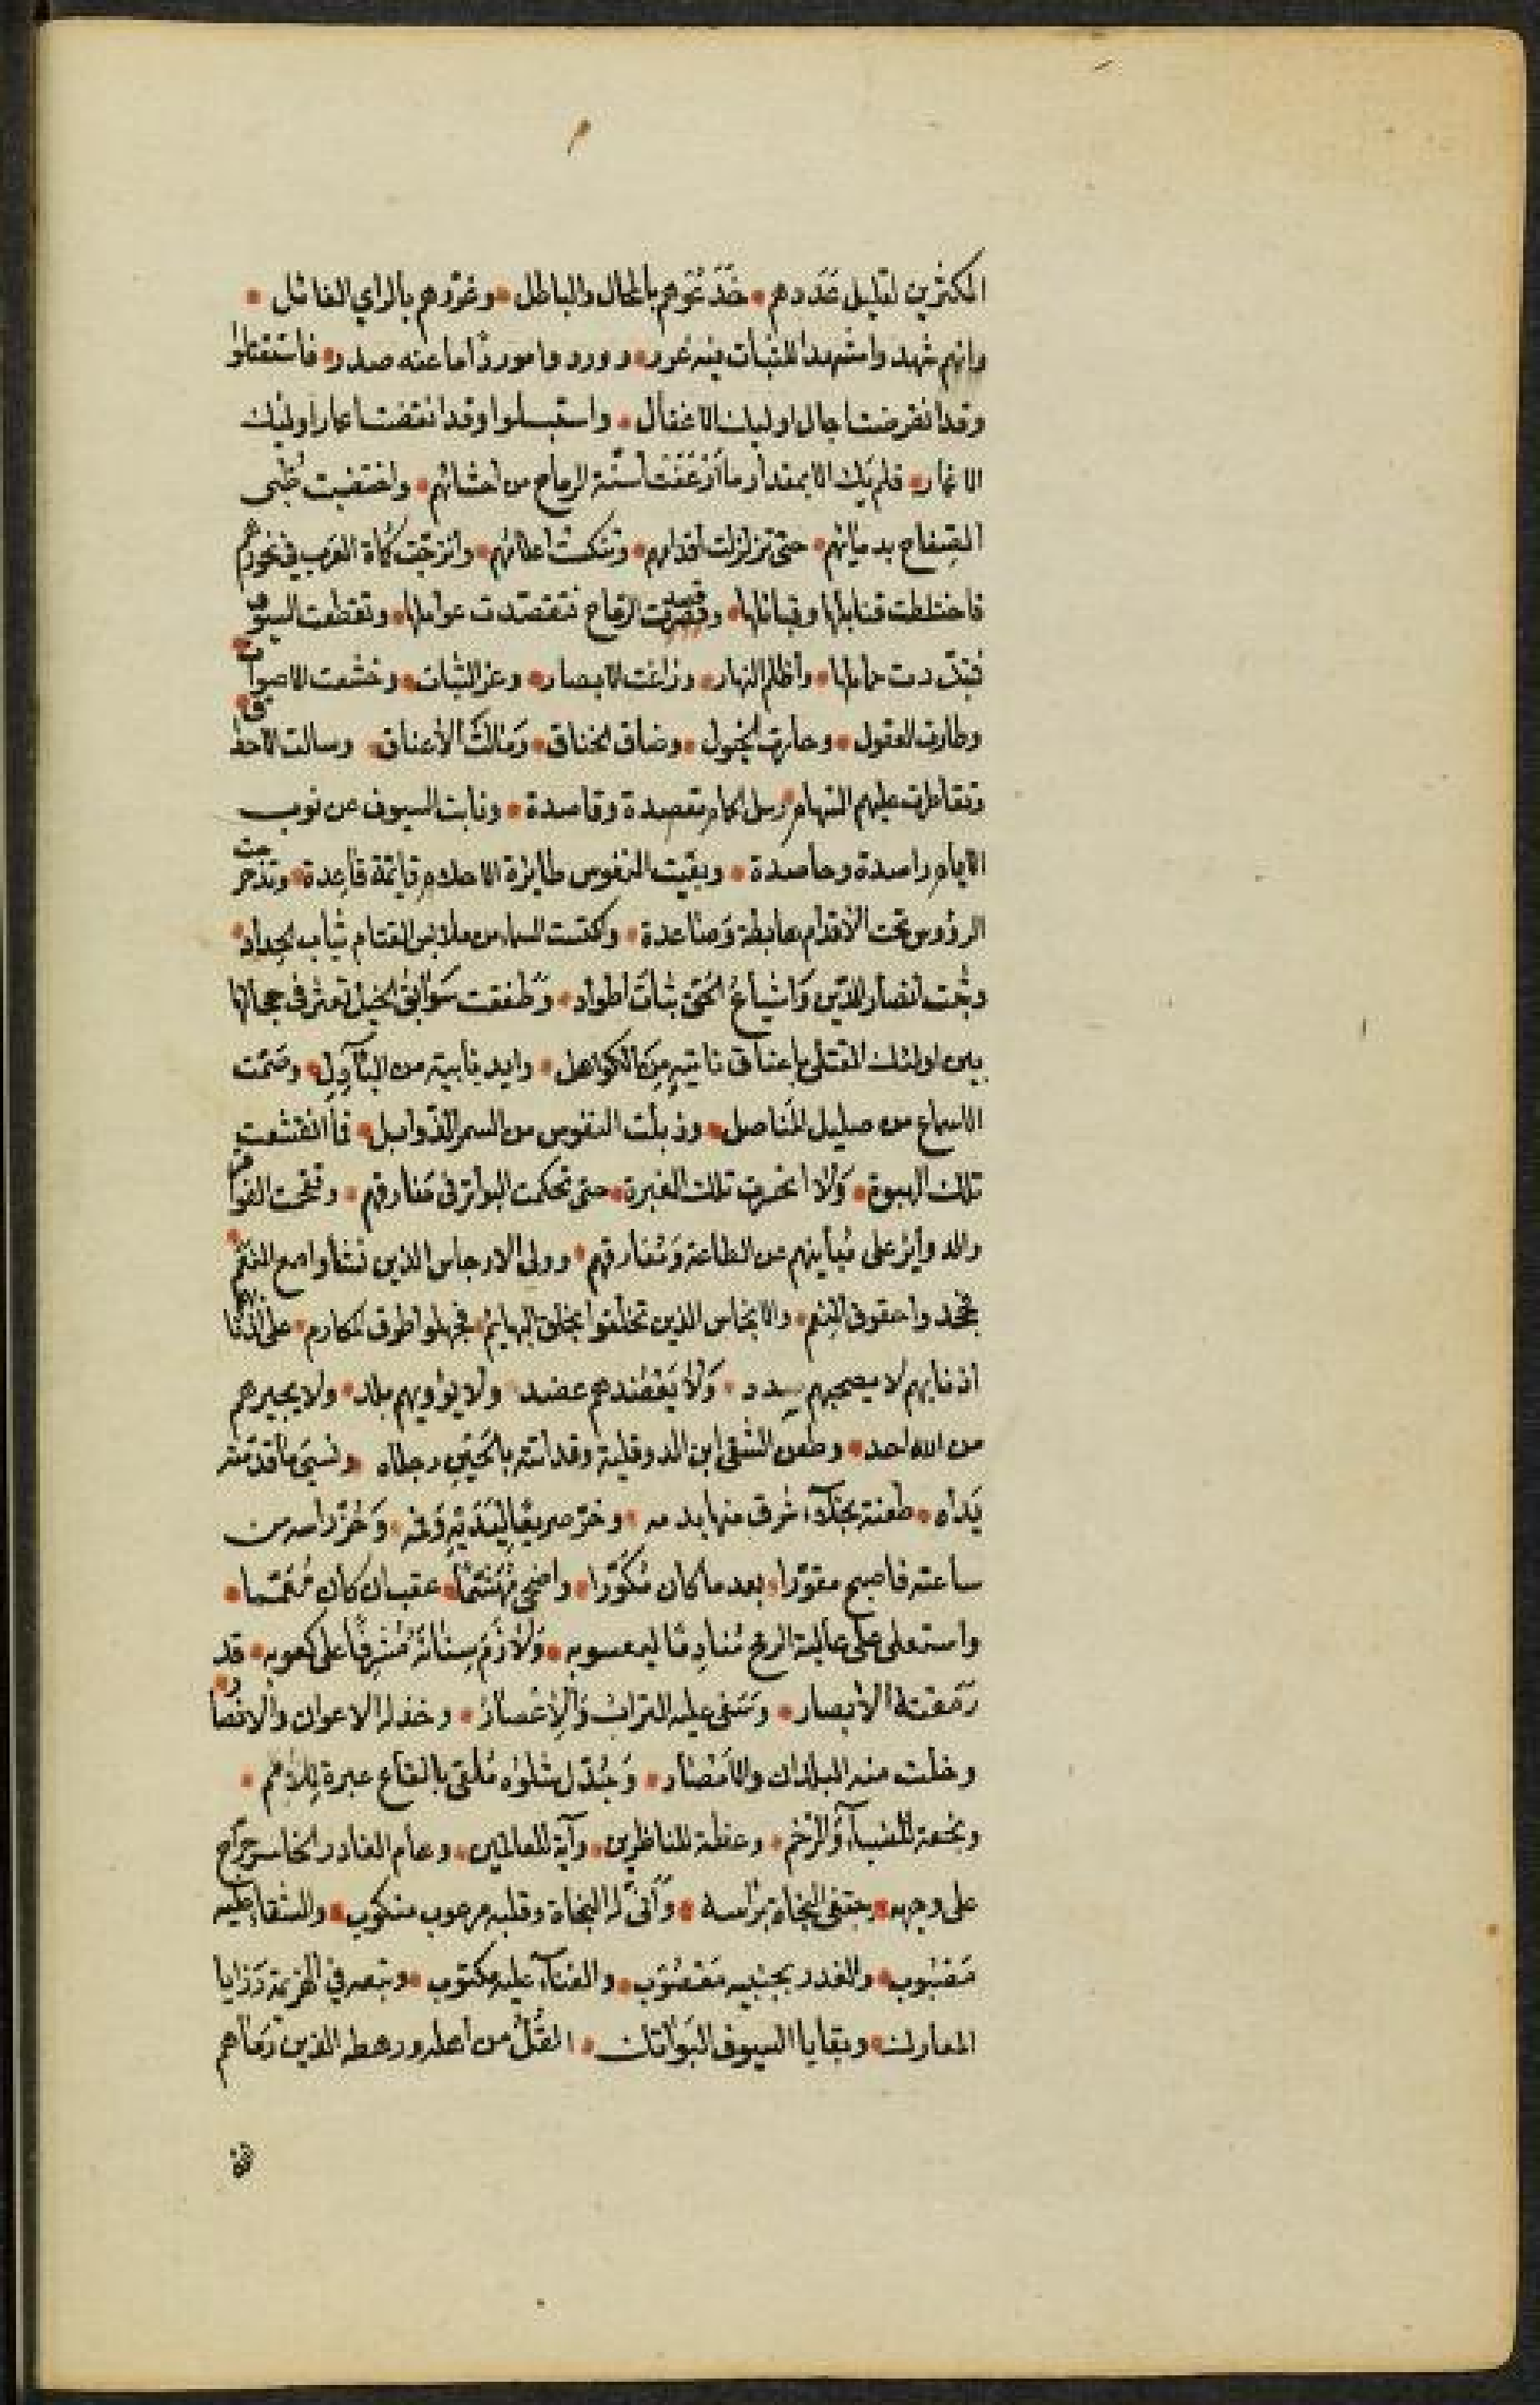 المكثرين لقليل عددهم • خَدَعُوهم بالمحال والباطل • وغرّوهم بالراي الفائل •
وانهم شهدوا مشهدا للثبات فيه غرر • ووردوا موردًا ما عنه صدر • فاستقتلوا
وقد انقرضت اجال اوليك الاغفال • واستبسلوا وقد انقضت اعمار اوليك
الاغمار • فلم يك الا بمقدار ما أرعفت أسنّة الرماح من احشائهم • واختضبت ظبى
الصِفاح بدمائهم • حتى تزلزلت اقدامهم • وتنكست اعلامهم • وانزجّت كماة العرب في نحورهم
فاختلطت قنابلها وقبائلها • وقصرت الرماح فتقصّدت عواملها • وتقطعت السيوف
فتبدّدت حمايلها • وأظلم النهار • وزاغت الابصار • وعز الثبات • وخشعت الاصوات
وطارت العقول • وحارت الخيول • وضاق الخناق • ومالت الأعناق • وسالت الاحداق
وتقاطرت عليهم السهام رسل الحمام مقصدة وقاصدة • ونابت السيوف عن نوب
الايام راصدة وحاصدة • وبقيت النفوس طايرة الاحلام قائمة قاعدة • وتدحرجت
الرؤوس تحت الأقدام هابطة وَصاعدة • واكتست السماء من ملابس القتام ثياب الحداد •
وثبت انصار الدّين وَاشياعُ الحَق ثبات اطواد • وَطفقت سَوابق الخيل تعثر في مجالها
بين اولئك القتلى باعناق نائية مِنَ الكواهل • وايد نابية من البآدِل • وصَمّت
الاسماع من صليل المناصل • وذبلت النفوس من السمر الذّوابل • فما انقشعت
تلك الهبوة • وَلا انحسرت تلك الغبرة • حتى تحكمت البواتر في مَفارقهم •
والدوائر على مُباينهم عن الطاعة وَمُفارقهم • وولى الارجاس الذين نشأوا مع النعم
فجحدوا حقوق النعم • والانجاس الذين تخلّقوا بخلق البهائم • فجهلوا طرق المكارم • على
اذنابهم لا يصحبهم سدد • وَلا يَعْضُدهم عضد • ولا يؤويهم بلد • ولا يجيرهم
من الله احد • وطعن الشقي ابن وقد اتته بالحَيْنِ رجلاه • ونسيَ ما قدّمته
يَداه • طعنة نجلآء شرق منها بدمه • وخرّ صريعًا لِيَدَيْهِ وَفمه • وَحُزّ راسه من
ساعته فاصبح مقوّرا • بعد ما كان مُكَوّرا • واضحى مُهَشّمًا • عقب ان كان مُعَمّما •
واستعلى على عالية الرمح مُنادِمًا ليعسوبه • وَلازَمَ سِنانَهُ مُشرِفًا على كعوبه • قد
رَمَقتهُ الابصار • وتسفي عليه التراب وَالإعْصارُ • وخذله الاعوان والانصار
وخلت منه البلدان والأمْصار • وَجُدّل شلوُه مُلقى بالقاع عبرة لِلأمم •
ونجعة للضباع وَالرّخم • وعظة للناظرين • وآية للعالمين • وهام الغادر الخاسر
على وجهه • يبتغي النجاة برأسه • وَأنّى له النجاة وقلبه مرعوب منكوب • والشقاء عليه
مَصْبُوب • والغدر بجنبيه مَعْصُوب • والفنآء عليه مكتوب • وتبعه في الهزيمة رَزايا
المعارك • وبقايا السيوف البَواتك • الفَلّ من اهله ورهطه الذين رَماهم